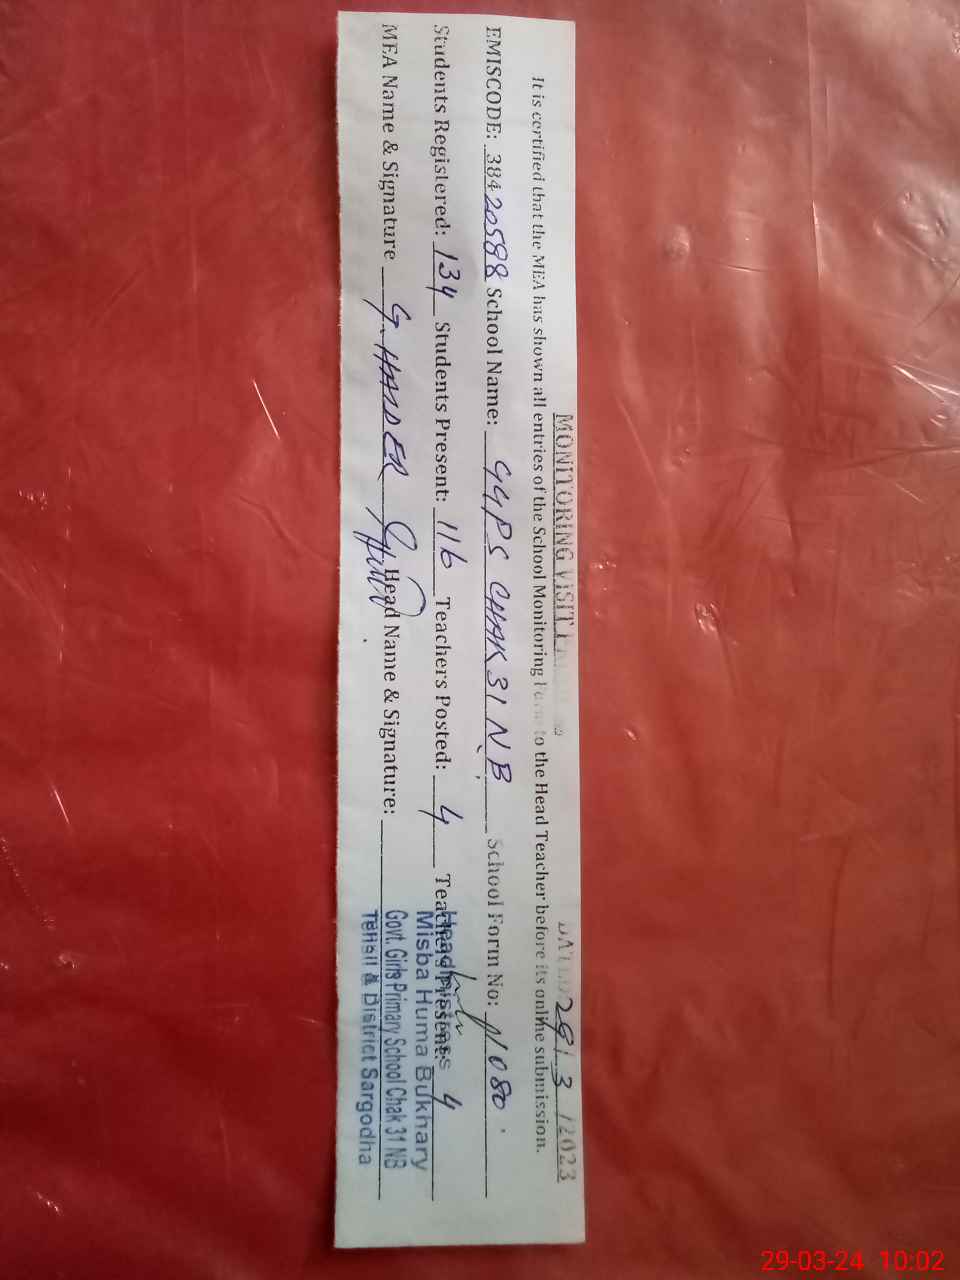 MONITORING VISIT
DATED 29/3/2023
It is certified that the MEA has shown all entries of the School Monitoring Form to the Head Teacher before its online submission.
EMISCODE: 38420588 School Name: GGPS CHAK 31 NB School Form No: 11080
Students Registered: 134 Students Present: 116 Teachers Posted: 4 Teachers Present: 4
MEA Name & Signature G. HAIDER Head Name & Signature:
Headmistress
Misba Huma Bukhary
Govt. Girls Primary School Chak 31 NB
Tehsil & District Sargodha
29-03-24 10:02